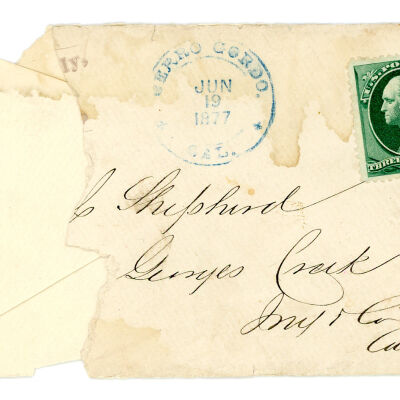 ly.
CERRO GORDO.
JUN
19
1877
CAL.
U.S. PO
THREE
Shepherd
Georges Creek
Inyo Co
Ca